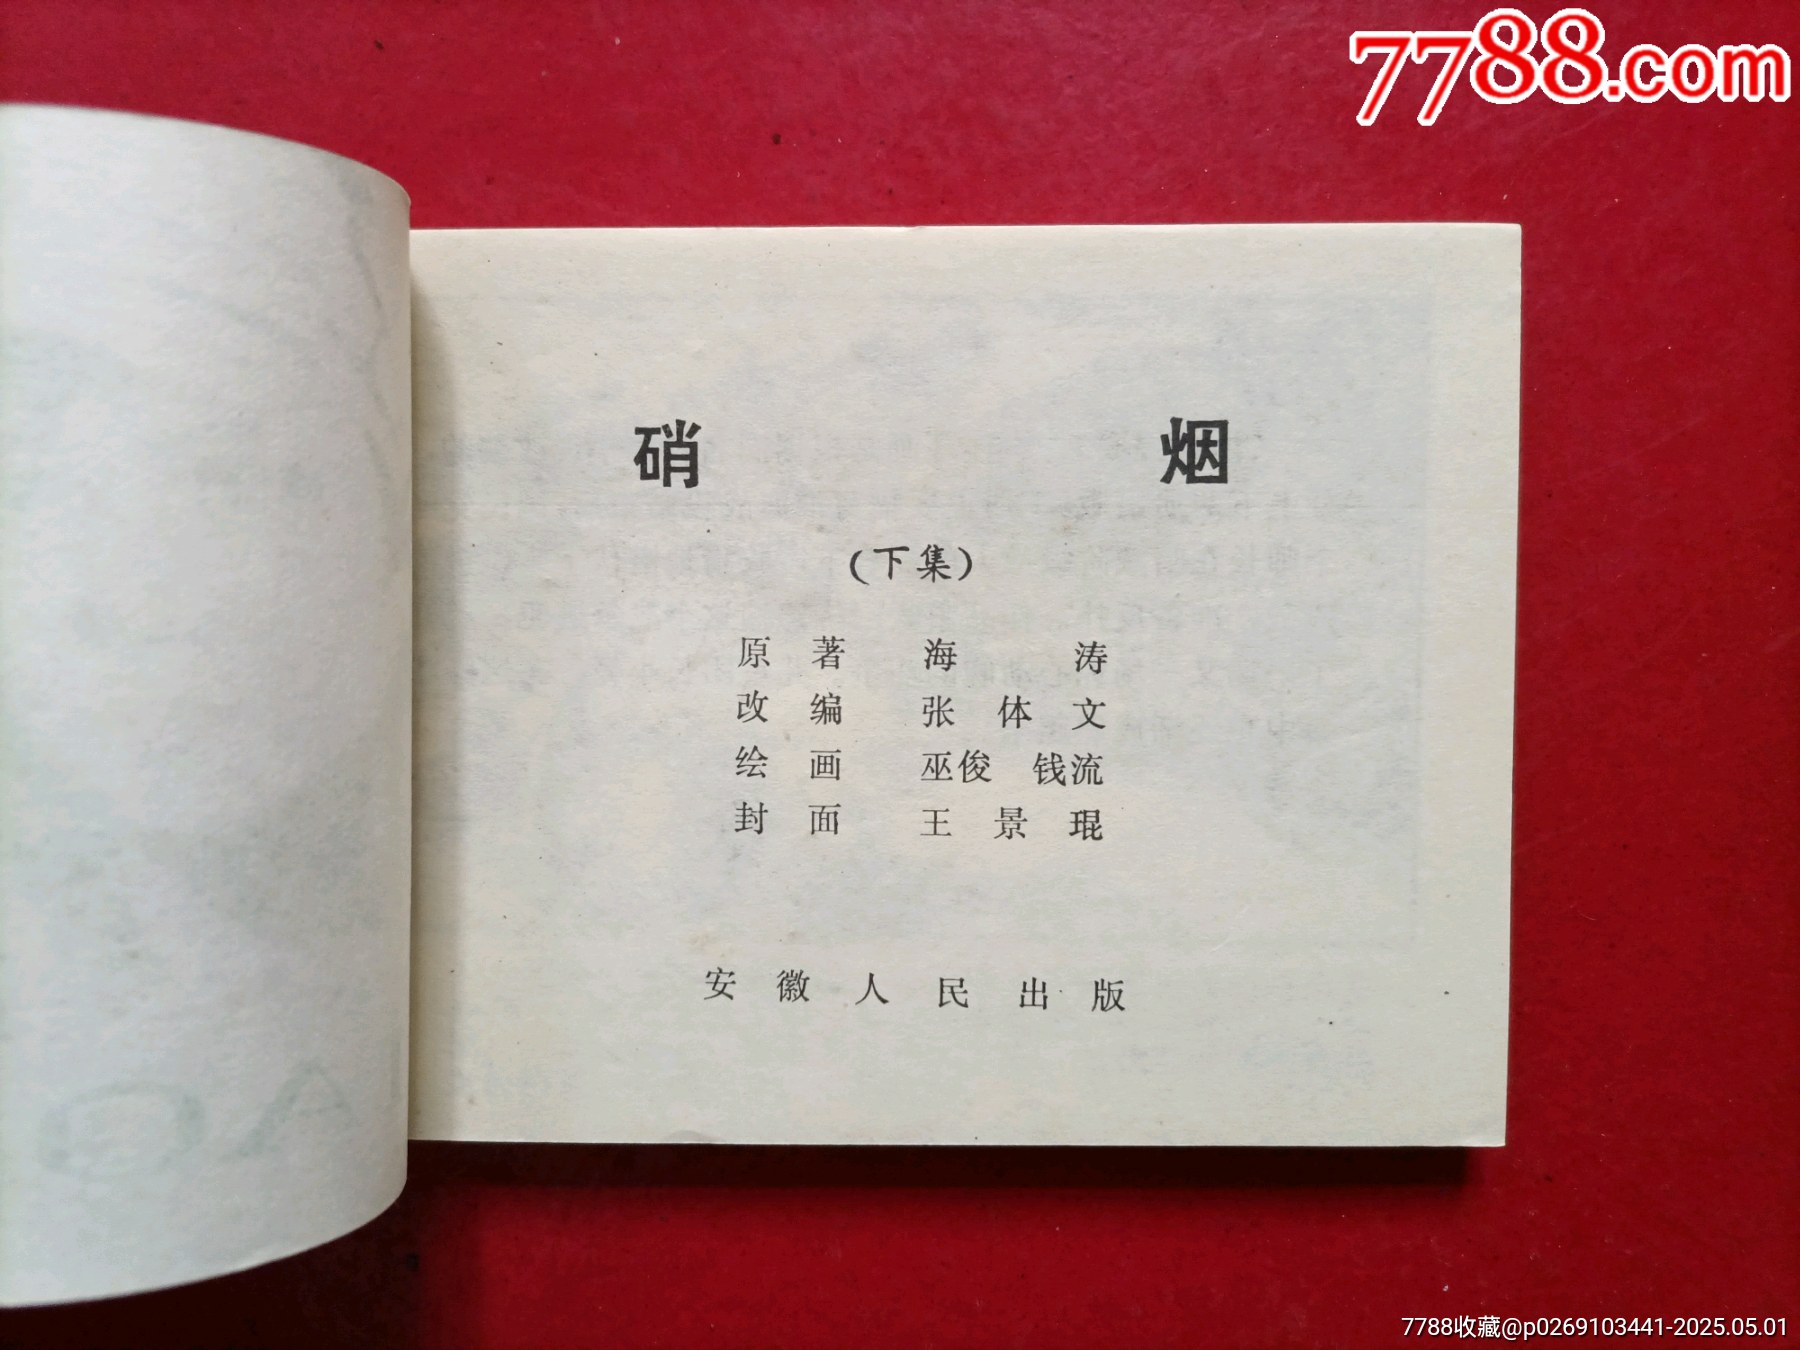 7788.com
硝 烟
(下集)
原 著 海 涛
改 编 张 体 文
绘 画 巫俊 钱流
封 面 王 景 琨
安 徽 人 民 出 版
7788收藏@p0269103441-2025.05.01